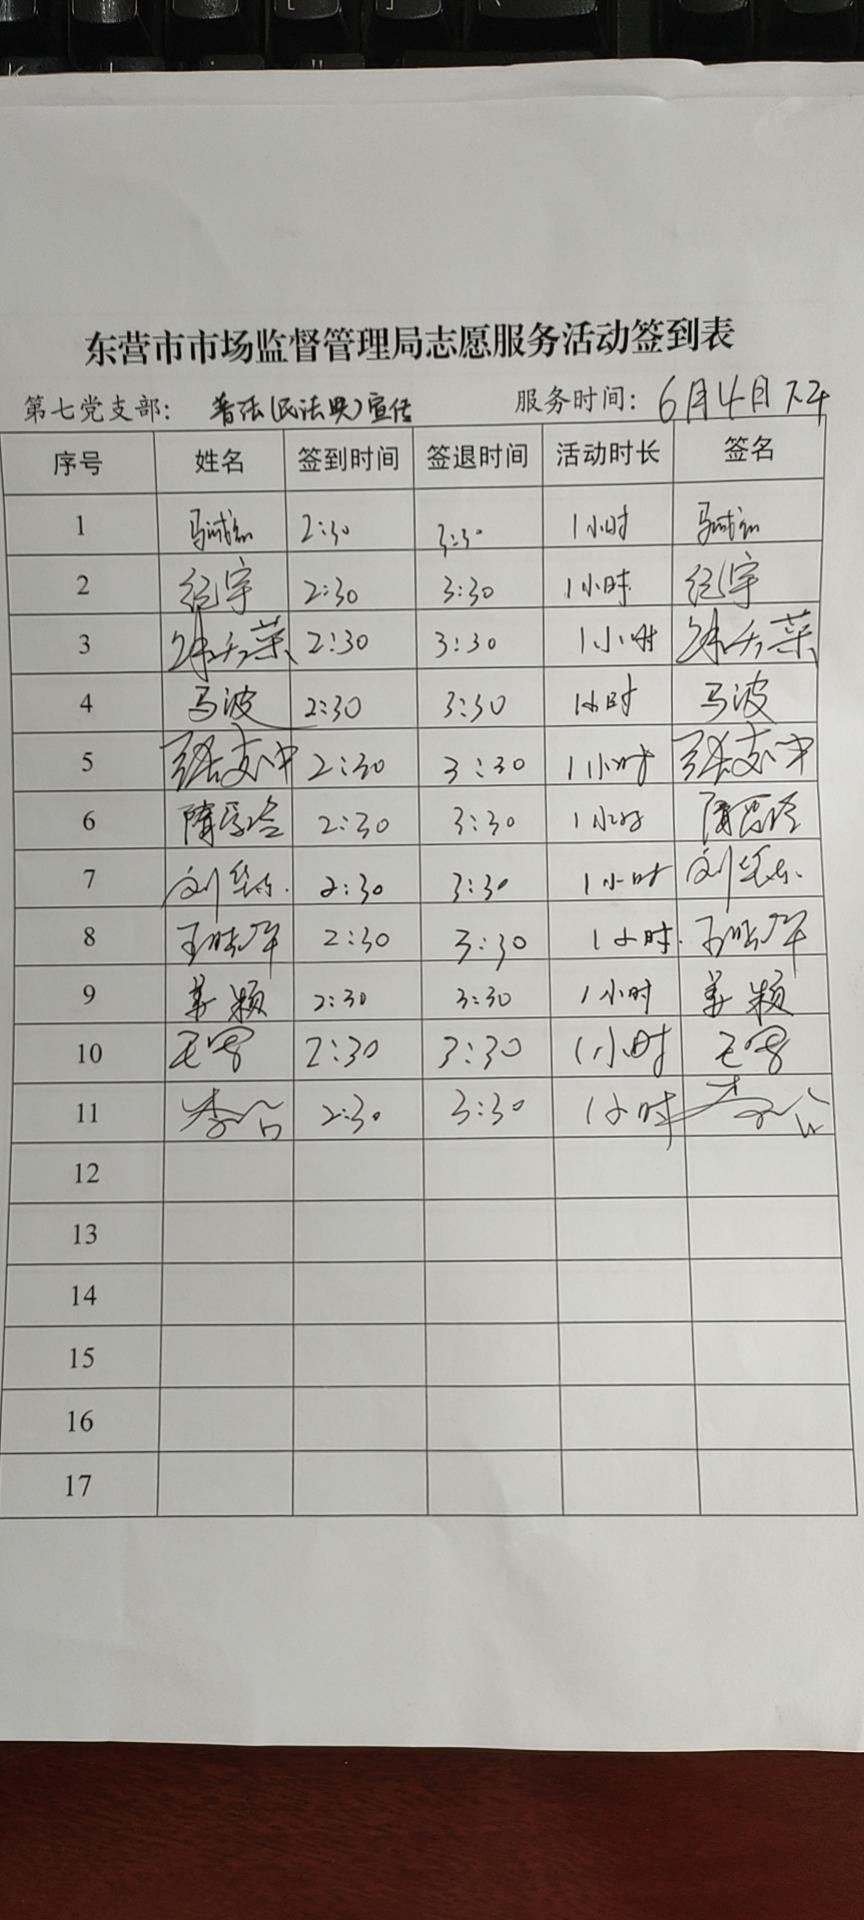 东营市市场监督管理局志愿服务活动签到表
第七党支部： 普法(民法典)宣传 服务时间：6月4日下午
序号 姓名 签到时间 签退时间 活动时长 签名
1 2:30 3:30 1小时
2 纪宇 2:30 3:30 1小时 纪宇
3 2:30 3:30 1小时
4 马波 2:30 3:30 1小时 马波
5 2:30 3:30 1小时
6 2:30 3:30 1小时
7 2:30 3:30 1小时
8 2:30 3:30 1小时
9 姜颖 2:30 3:30 1小时 姜颖
10 2:30 3:30 1小时
11 2:30 3:30 1小时
12
13
14
15
16
17